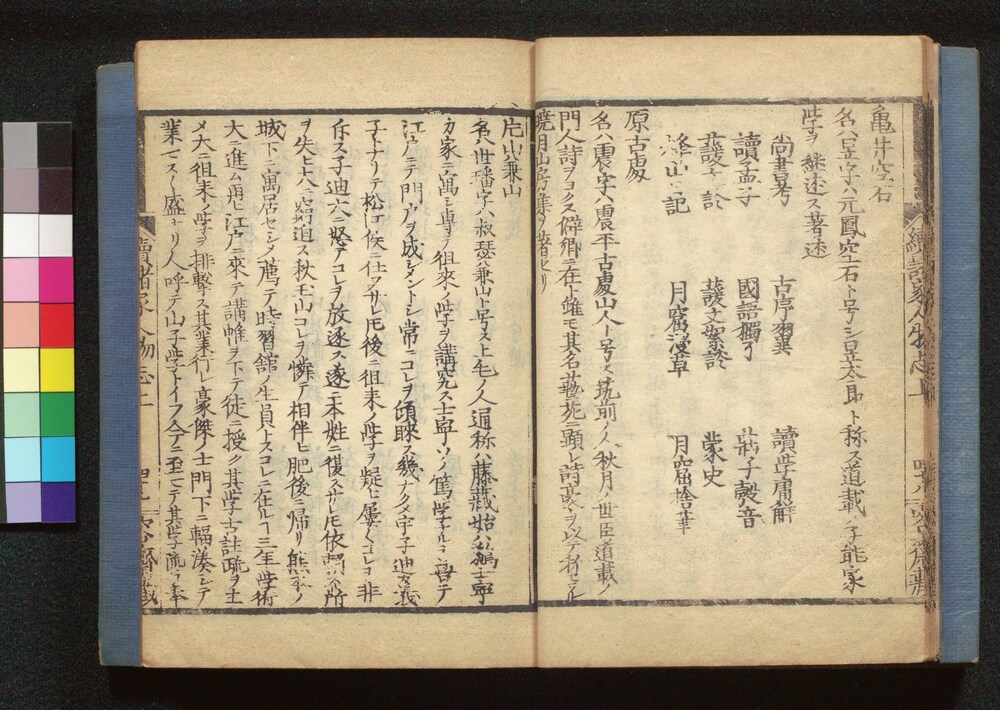 亀井空石
名ハ昱字ハ元鳳空石ト号シ昱太郎ト称ス道載ノ子能家
学ヲ継述ス著述
尚書考 古序翼 讀学庸解
讀孟子 國語獨了 荘子瞉音
護文絮談 蒙史
峰山記 月窟漫草 月窟捨華
原古處
名ハ震字ハ震平古處山人ト号ス筑前ノ人秋月ノ世臣道載ノ
門人詩ヲヨクス僻郷ニ在ト雖モ其名藝苑ニ顕レ詩豪ヲ以テ称セラル
片山兼山
名ハ世璠字ハ叔瑟兼山ト号ス上毛ノ人通称ハ藤藏始ハ鵜士寧
カ家ニ寓シ専ラ徂來ノ学ヲ講究ス士寧ソノ篤学ナルヲ喜テ
江戸ニテ門戸ヲ成シメントシ常ニコレヲ顧眄ス幾ナクメ宇子迪ノ義
子トナリテ松江侯ニ仕フサレ𪜈後ニ徂来ノ学ヲ疑ヒ屡〻コレヲ非
斥ス子迪大ニ怒テコレヲ放逐ス遂ニ本姓ニ復スサレ𪜈依頼ス所
ヲ失ヒ大ニ窮迫ス秋玉山コレヲ憐テ相伴ヒ肥後ニ帰リ熊本ノ
城下ニ寓居セシメ薦テ時習館ノ生員トスコレニ在ルヿ三年学術
大ニ進ム再ヒ江戸ニ來テ講帷ヲ下テ徒ニ授ク其学古註疏ヲ主
メ大ニ徂来ノ学ヲ排撃ス其業行レ豪傑ノ士門下ニ輻湊シテ
業ヿスル盛ナリ人呼テ山子学トイフ今ニ至マテ其学流ヲ奉
續諸家人物志上